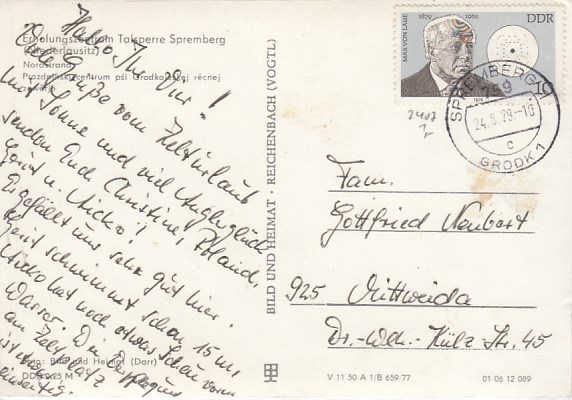 Erholungszentrum Talsperre Spremberg
(Niederlausitz)
Nordstrand
Prozdninski centrum pśi Grodkojskej rěcnej
Hallo Ihr Vier!
Die Grüße vom Zelturlaub
mit Sonne und viel Anglerglück
senden Euch Christine, Roland,
Gerit u. Micko!
Es gefällt uns sehr gut hier.
Gerit schwimmt schon 15 m,
Micko hat noch etwas Scheu vorm
Wasser. Die Verpflegung
am Zeltplatz
ist
Foto: Bild und Heimat (Darr)
DDR 0,25 M
BILD UND HEIMAT · REICHENBACH (VOGTL)
MAX VON LAUE
1879 1960
DDR
10
1979
SPREMBERG 1
759
24.9.79-10
c
GRODK 1
Fam.
Gottfried Neubert
925 Mittweida
Dr.-Wilh.-Külz Str. 45
V 11 50 A 1/B 659/77
01 06 12 089